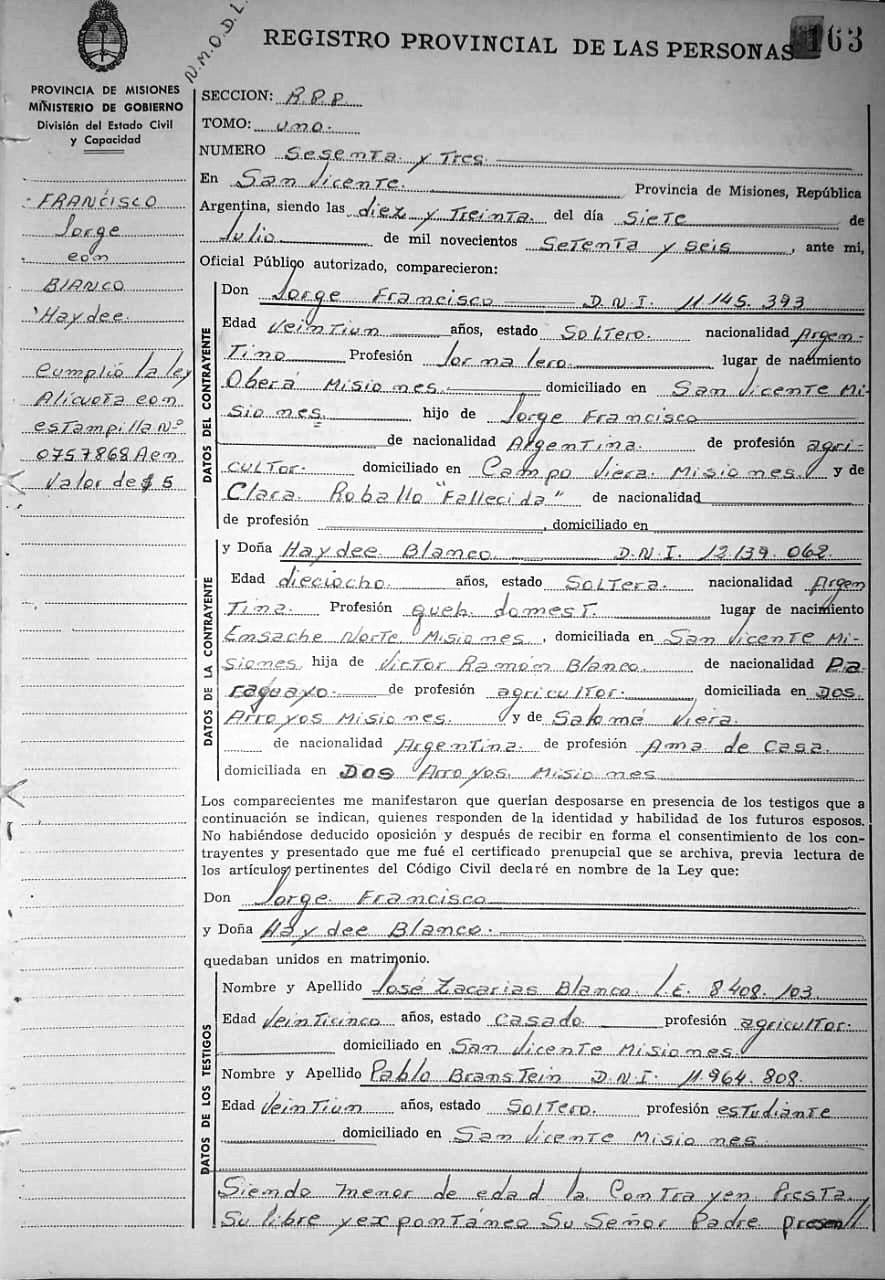 N.M.O.D.L.
REGISTRO PROVINCIAL DE LAS PERSONAS
163
PROVINCIA DE MISIONES
MINISTERIO DE GOBIERNO
División del Estado Civil
y Capacidad
FRANCISCO
Jorge
con
BLANCO
Haydee.
Cumplió la ley
Alicuota con
estampilla Nº
0757868 A en
Valor de $ 5
SECCION: R.P.P.
TOMO: uno.
NUMERO Sesenta y Tres.
En San Vicente. Provincia de Misiones, República
Argentina, siendo las diez y Treinta. del día Siete de
Julio de mil novecientos Setenta y seis, ante mi,
Oficial Público autorizado, comparecieron:
DATOS DEL CONTRAYENTE
Don Jorge Francisco D.N.I. 11.145.393
Edad Veintiun años, estado Soltero. nacionalidad Argen-
Tino Profesión Jornalero. lugar de nacimiento
Oberá Misiones. domiciliado en San Vicente Mi-
siones. hijo de Jorge Francisco
de nacionalidad Argentina. de profesión agri-
cultor. domiciliado en Campo Viera. Misiones. y de
Clara Roballo "Fallecida" de nacionalidad
de profesión , domiciliado en
DATOS DE LA CONTRAYENTE
y Doña Haydee Blanco. D.N.I. 12.139.062.
Edad dieciocho. años, estado Soltera. nacionalidad Argen
Tina. Profesión queh. domest. lugar de nacimiento
Ensache Norte Misiones, domiciliada en San Vicente Mi-
siones. hija de Victor Ramón Blanco. de nacionalidad Pa-
raguayo. de profesión agricultor. domiciliada en Dos.
Arroyos Misiones. y de Salomé Viera.
de nacionalidad Argentina. de profesión Ama de Casa.
domiciliada en Dos Arroyos. Misiones
Los comparecientes me manifestaron que querían desposarse en presencia de los testigos que a
continuación se indican, quienes responden de la identidad y habilidad de los futuros esposos.
No habiéndose deducido oposición y después de recibir en forma el consentimiento de los con-
trayentes y presentado que me fué el certificado prenupcial que se archiva, previa lectura de
los artículos pertinentes del Código Civil declaré en nombre de la Ley que:
Don Jorge Francisco
y Doña Haydee Blanco.
quedaban unidos en matrimonio.
DATOS DE LOS TESTIGOS
Nombre y Apellido José Zacarias Blanco. L.E. 8.408.103.
Edad Veinticinco años, estado Casado. profesión agricultor.
domiciliado en San Vicente Misiones.
Nombre y Apellido Pablo Branstein D.N.I. 11.964.808.
Edad Veintiun años, estado Soltero. profesión estudiante
domiciliado en San Vicente Misiones.
Siendo menor de edad la Contrayen. Presta
Su libre y expontáneo Su Señor Padre